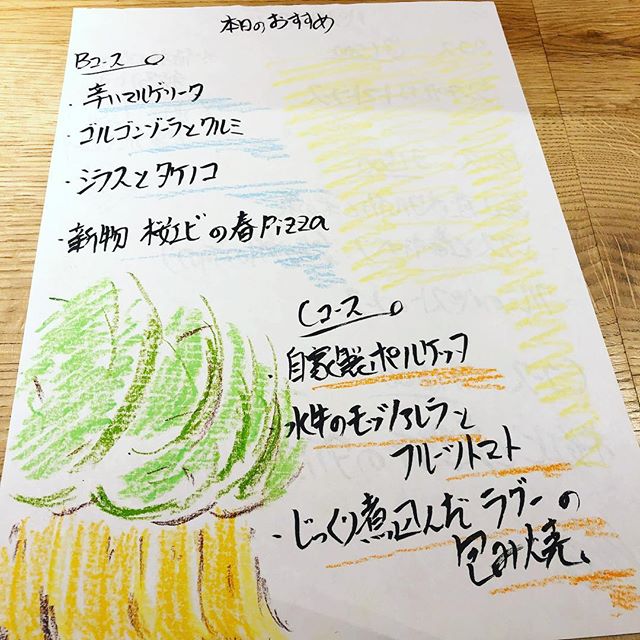 本日のおすすめ
Bコース
・辛いマルゲリータ
・ゴルゴンゾーラとクルミ
・シラスとタケノコ
・新物 桜エビの春Pizza
Cコース
・自家製ポルケッタ
・水牛のモッツァレラと
フルーツトマト
・じっくり煮込んだラグーの
包み焼